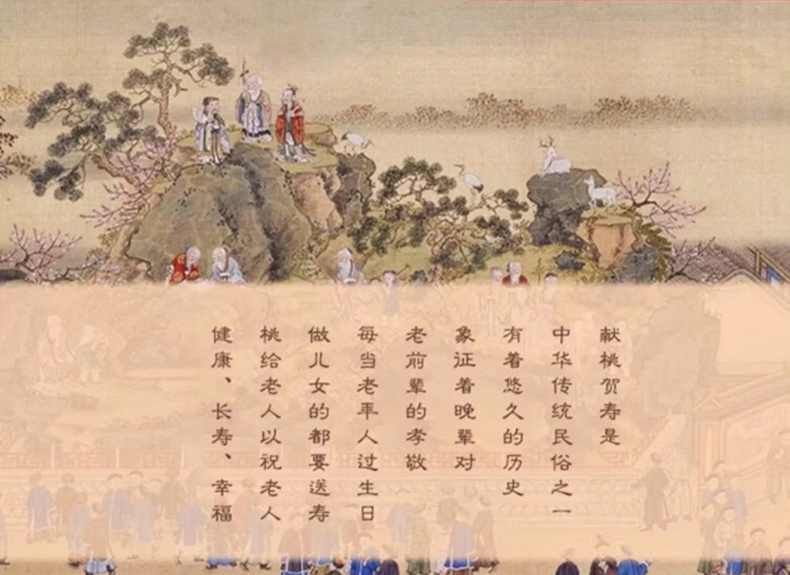 献桃贺寿是
中华传统民俗之一
有着悠久的历史
象证着晚辈对
老前辈的孝敬
每当老年人过生日
做儿女的都要送寿
桃给老人以祝老人
健康、长寿、幸福